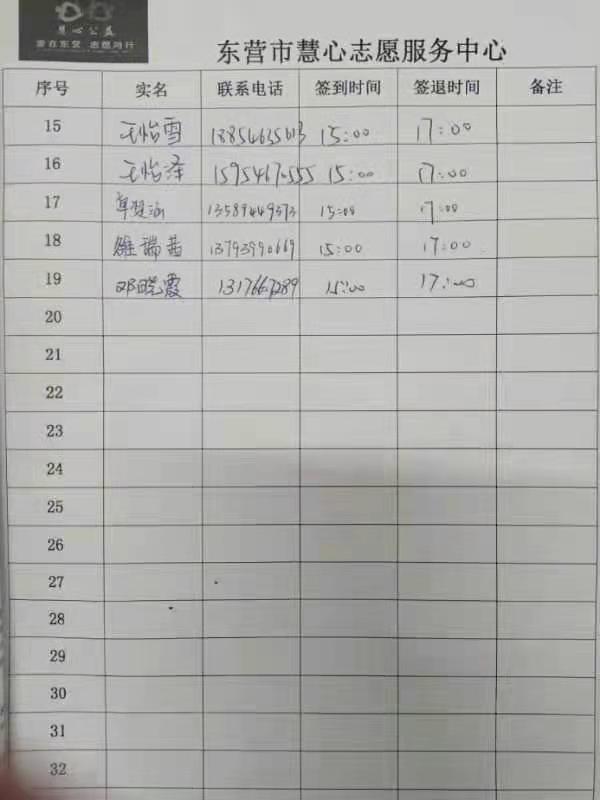 慧心公益
爱在东营 志愿同行
东营市慧心志愿服务中心
序号 实名 联系电话 签到时间 签退时间 备注
15 王怡雪 15:00 17:00
16 王怡泽 15:00 17:00
17 13589449373 15:00 17:00
18 雒瑞茜 13793990669 15:00 17:00
19 邓晓霞 15:00 17:00
20
21
22
23
24
25
26
27
28
29
30
31
32